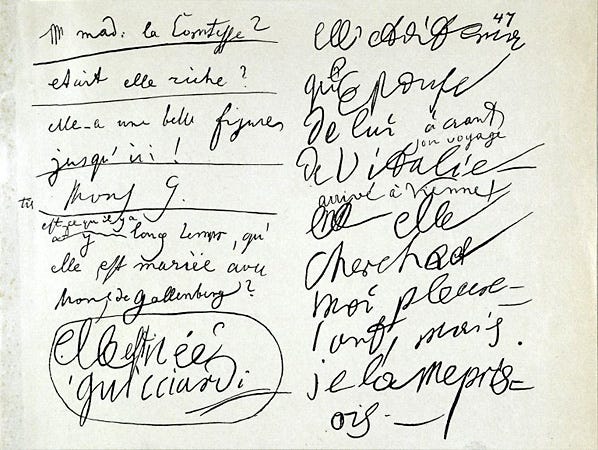 mad: la Comtesse?
etait elle riche?
elle a une belle figures
jusqu'ici!
Mons G.
est ce qu'il y a
long temps, qu'
elle est mariée avec
Mons de Gallenberg?
Elle est née
guicciardi
47
elle etoit
Epouse
de lui avant
son voyage
de l'italie –
arrivé à Vienne
elle
cherchad
moi pleure–
ant, mais.
je la mepris–
ois. –